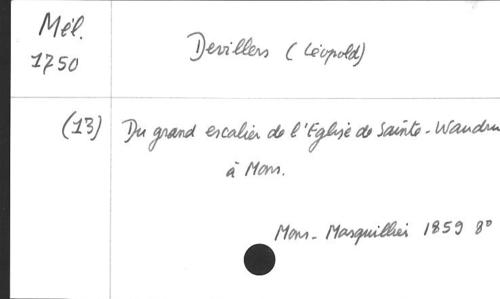 Mél. Devillers (Léopold)
1750
(13) Du grand escalier de l'Eglise de Sainte-Waudru
à Mons.
Mons - Masquillier 1859 8°